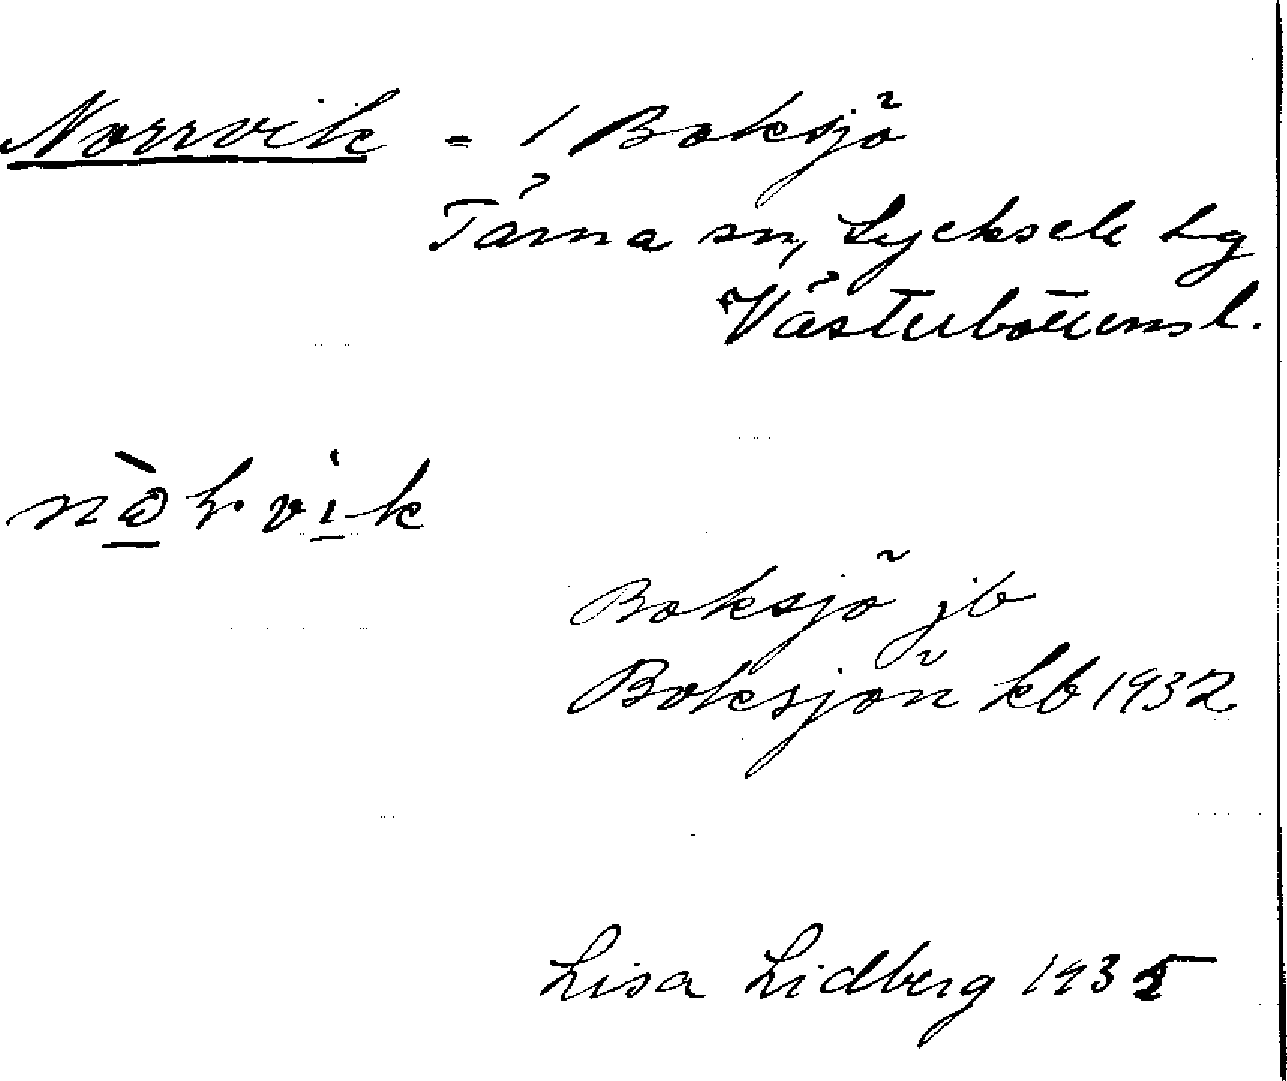 Norrvik = 1 Boksjö
Tärna sn, Lycksele lg
Västerbottens l.
Boksjö jb
Boksjön kb 1932
Lisa Lidberg 1935